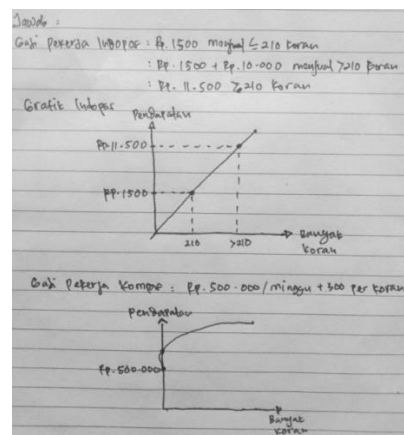 Jawab :
Gaji Pekerja Indopos : Rp. 1500 menjual ≤ 210 koran
: Rp. 1500 + Rp. 10.000 menjual >210 koran
: Rp. 11.500 ≥210 koran
Grafik Indopos
Pendapatan
Rp. 11.500
Rp. 1500
210
>210
Banyak
koran
Gaji Pekerja Kompas : Rp. 500.000/minggu + 300 per koran
Pendapatan
Rp. 500.000
Banyak
koran